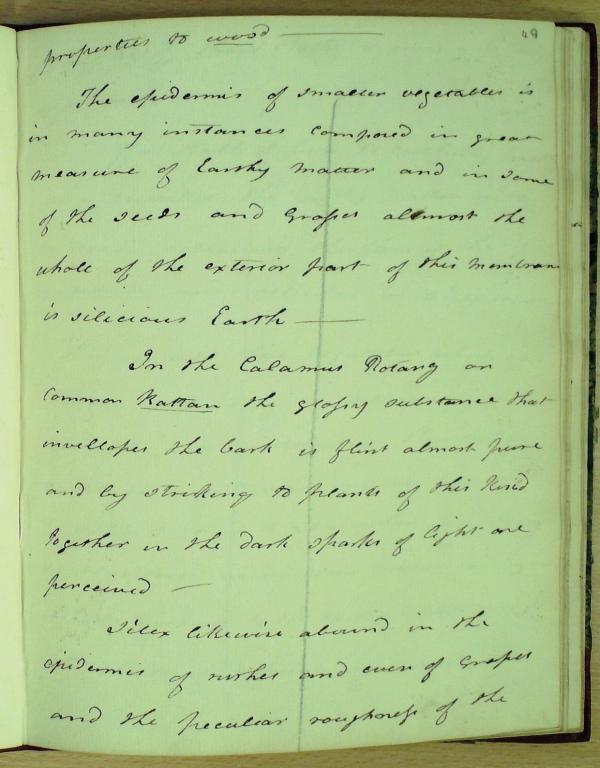 49
properties to wood ———
The epidermis of smaller vegetables is
in many instances composed in great
measure of Earthy matter and in some
of the seeds and Grasses allmost the
whole of the exterior part of this membran
is silicious Earth ——
In the Calamus Rotang or
Common Rattan the glossy substance that
invellopes the bark is flint almost pure
and by striking to plants of this Kind
together in the dark sparks of light are
perceived —
Silex likewise abound in the
epidermis of rushes and even of Grasses
and the peculiar roughness of the